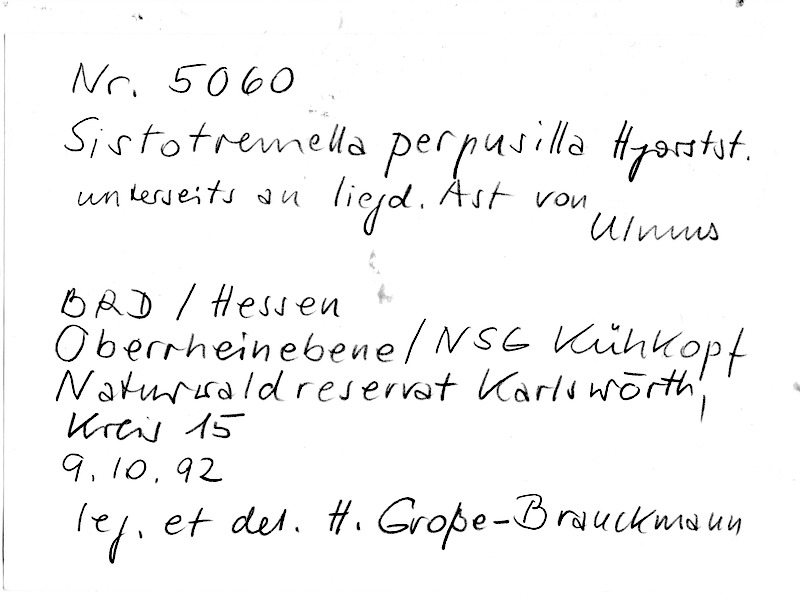 Nr. 5060
Sistotremella perpusilla Hjortst.
unterseits an liegd. Ast von
Ulmus
BRD / Hessen
Oberrheinebene / NSG Kühkopf
Naturwaldreservat Karlswörth,
Kreis 15
9.10.92
leg. et det. H. Große-Brauckmann